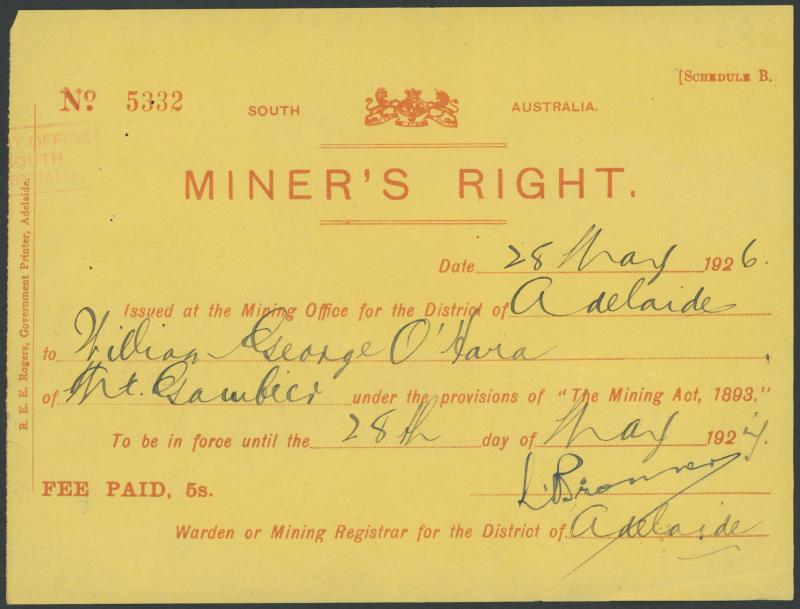 [SCHEDULE B.
No. 5332
SOUTH AUSTRALIA.
MINER'S RIGHT.
Date 28 May 1926.
Issued at the Mining Office for the District of Adelaide
to William George O'Hara
of Mt. Gambier under the provisions of "The Mining Act, 1893."
To be in force until the 28th day of May 1927.
FEE PAID, 5s.
Warden or Mining Registrar for the District of Adelaide
R. E. E. Rogers, Government Printer, Adelaide.
OFFICE
SOUTH